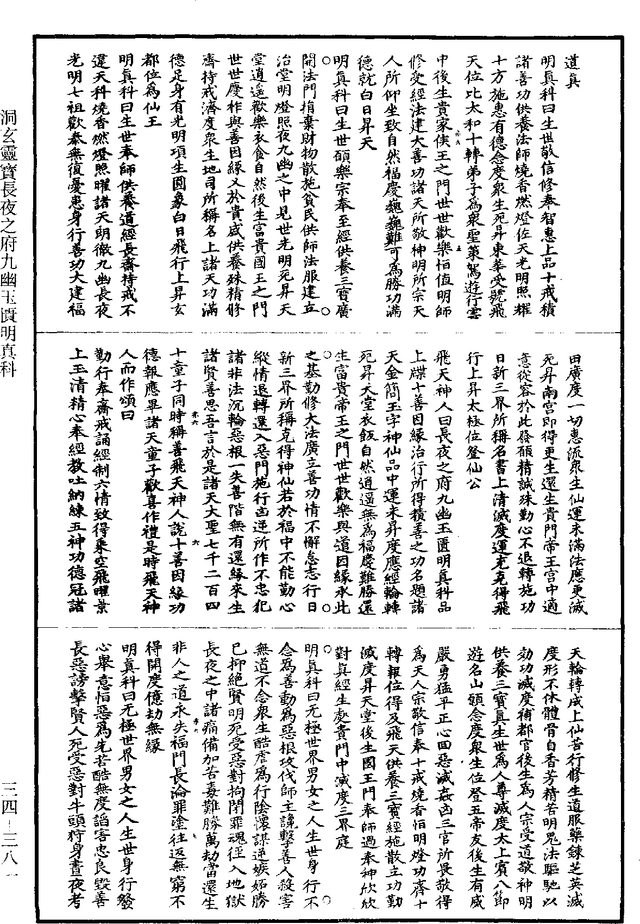 道真
明真科曰生世敬信修奉智惠上品十戒積
諸善功供養法師燒香燃燈佐天光明照耀
十方施惠有德念度衆生死昇東華受號飛
天位比太和十轉弟子為衆聖策駕遊行雲
中後生貴家侯王之門世世歡樂恒值明師
修受經法建大善功諸天所敬神明所宗天
人所仰坐致自然福慶巍巍難可為勝功滿
德就白日昇天
明真科曰生世願樂宗奉至經供養三寶廣
開法門捐棄財物散施貧民供師法服建立
治堂明燈照夜九幽之中見世光明死昇天
堂逍遙歡樂衣食自然後生富貴國王之門
世世慶柞與善因緣又於貴盛供養殊精修
齋持戒濟度衆生地司所稱名上諸天功滿
德足身有光明項生圓象白日飛行上昇玄
都位為仙王
明真科曰生世奉師供養道經長齋持戒不
違天科燒香燃燈照曜諸天朗徹九幽長夜
光明七祖歡泰無復憂患身行善功大建福
田廣度一切惠流衆生仙運未滿法應更滅
死昇南宮即得更生還生貴門帝王宮中適
意從容於此發願精誠殊勤心不退轉施功
日新三界所稱名書上清滅度運充克得飛
行上昇太極位登仙公
飛天神人曰長夜之府九幽玉匱明真科品
上牒十善因緣治行所得積善之功名題諸
天金簡玉字神仙品中運未昇度應經輪轉
死昇天堂衣飯自然逍遥無為福慶難勝還
生富貴帝王之門世世歡樂與道因緣承此
之基勤修大法廣立善功情不懈怠志行日
新三界所稱克得神仙若於福中不能勤心
縱情退轉還入惡門施行凶逆所作不忠犯
諸非法沉輪惡根一失善階無有還緣來生
諸賢善思吾言於是諸天大聖七千二百四
十童子同時稱善飛天神人說十善因緣功
德報應畢諸天童子歡喜作禮是時飛天神
人而作頌曰
勤行奉齋戒誦經制六情致得乘空飛曜景
上玉清精心奉經教吐納練五神功德冠諸
天輪轉成上仙苦行修生道服藥鍊芝英滅
度形不休體骨自香芳精苦明鬼法驅馳以
効功滅度補都官後生為人宗受道敬神明
供養三寶真生世為人尊滅度太上賓八節
遊名山願念度衆生位登五帝友後生有威
嚴勇猛平正心回惡滅姦凶三官所畏敬得
為天人宗敬信奉十戒燒香恒明燈功齊十
轉報位得及飛天供養三寶經施散立功勤
滅度昇天堂後生國王門奉師過奉神欣欣
對真經生處貴門中滅度三界庭
明真科曰无極世界男女之人生世身行不
念為善動為惡根攻伐師主謗擊善人殺害
無道不念衆生酷虐為行陰懷謀逆嫉妬勝
已抑絕賢明死受惡對拘閉罪魂徑入地獄
長夜之中諸痛備加苦毒難勝萬劫當還生
非人之道永失福門長淪罪塗往返無窮不
得開度億劫無緣
明真科曰无極世界男女之人生世身行發
心舉意恒惡為先若酷無度謟害忠良毀善
長惡謗擊賢人死受惡對牛頭狩身晝夜考
洞玄靈寶長夜之府九幽玉匱明真科
三四-三八一